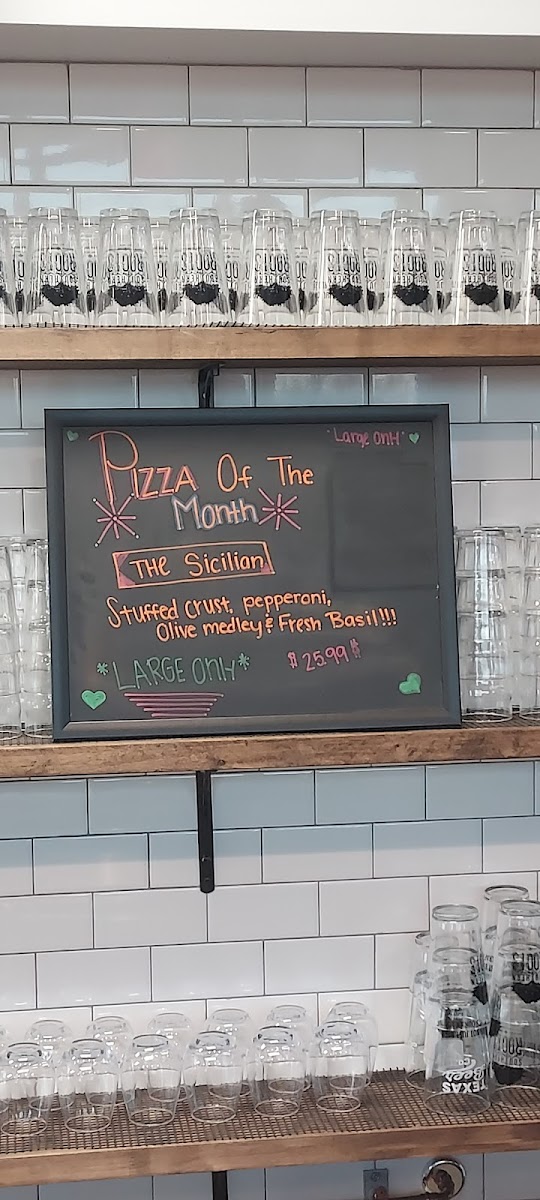 "Large Only"
Pizza Of The
Month
THE Sicilian
Stuffed crust, pepperoni,
Olive medley & Fresh Basil!!!
*LARGE ONLY*
$ 25.99 $
TEXAS
Beer
Co